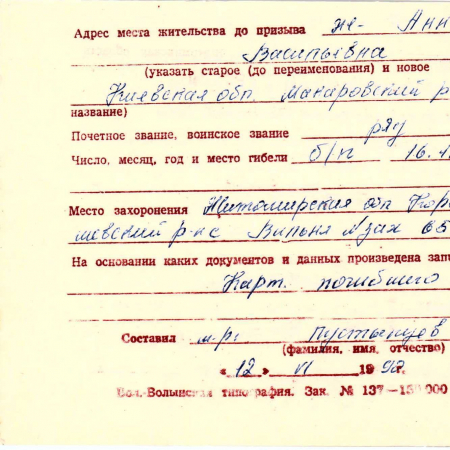 Адрес места жительства до призыва же- Анн
Васильевна
(указать старое (до переименования) и новое
Киевская обл. Макаровский р
название)
Почетное звание, воинское звание ряд
Число, месяц, год и место гибели б/п 16.1
Место захоронения Житомирская обл Кор
шевский р-н с Вильня № зах 65
На основании каких документов и данных произведена запи
Карт. погибшего
Составил м-р: Пустынцев
(фамилия, имя, отчество)
« 12 » VI 1992
Вол.-Волынская типография. Зак. № 137—150 000